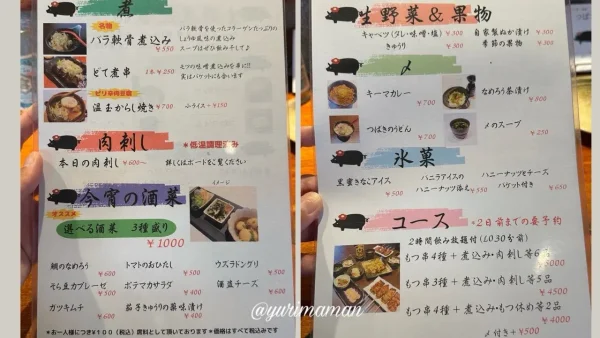 煮
名物
バラ軟骨煮込み
¥550
バラ軟骨を使ったコラーゲンたっぷりの
しょうゆ風味の煮込み
スープはぜひ飲み干して♪
どて煮串 1本 ¥250
モツの味噌煮込みを串に!!
実はバケットにも合います
ピリ辛肉豆腐
温玉からし焼き ¥700
ふライス+¥150
肉刺し
*低温調理済み
本日の肉刺し ¥600~
詳しくはボードをご覧ください
今宵の酒菜
イメージ
オススメ
選べる酒菜 3種盛り
¥1000
鯛のなめろう
¥600
トマトのおひたし
¥500
ウズラドングリ
¥500
そら豆カプレーゼ
¥500
ポテマカサラダ
¥400
酒盗チーズ
¥600
ガツキムチ
¥600
茄子きゅうりの薬味漬け
¥400
*お一人様につき¥100(税込)席料として頂いております*価格はすべて税込みです
生野菜&果物
キャベツ(タレ・味噌・塩) ¥300
きゅうり ¥300
自家製ぬか漬け ¥300
季節の果物 ¥500
〆
キーマカレー
¥700
なめろう茶漬け
¥800
つばきのうどん
¥700
〆のスープ
¥250
氷菓
黒蜜きなこアイス
¥500
バニラアイスの
ハニーナッツ添え
¥500
ハニーナッツとチーズ
バゲット付き
¥650
コース
*2日前までの要予約
2時間飲み放題付(LO30分前)
もつ串4種+煮込み・肉刺し等6品
¥5000
もつ串3種+煮込み・肉刺し等5品
¥4500
もつ串4種+煮込み・もつ休め等2品
¥4000
〆付き+¥500
@yurimaman